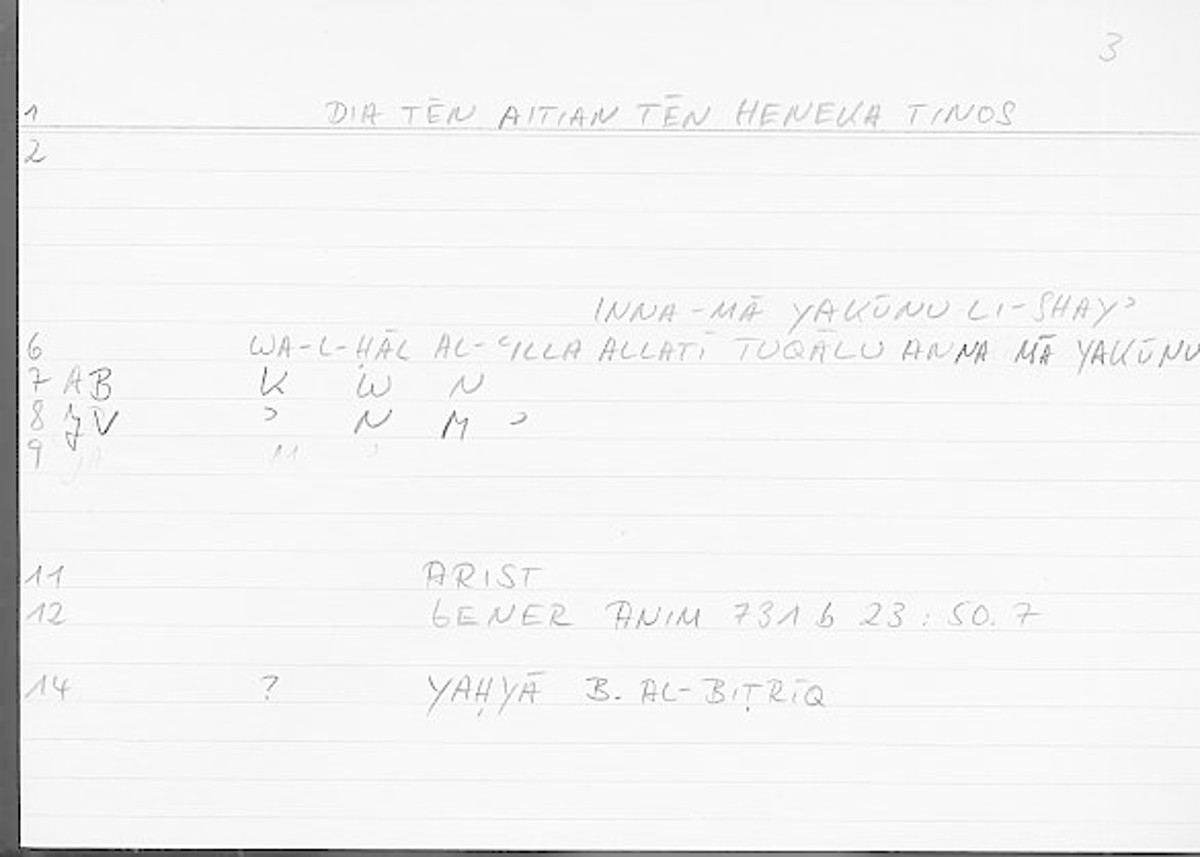 3
1 DIA TĒN AITIAN TĒN HENEKA TINOS
2
INNA-MĀ YAKŪNU LI-SHAYʾ
6 WA-L-ḤĀL AL-ʿILLA ALLATĪ TUQĀLU ANNA MĀ YAKŪNU
7 AB K W N
8 JV ʾ N M ʾ
9
11 ARIST
12 GENER ANIM 731 b 23 : 50.7
14 ? YAḤYĀ B. AL-BIṬRĪQ